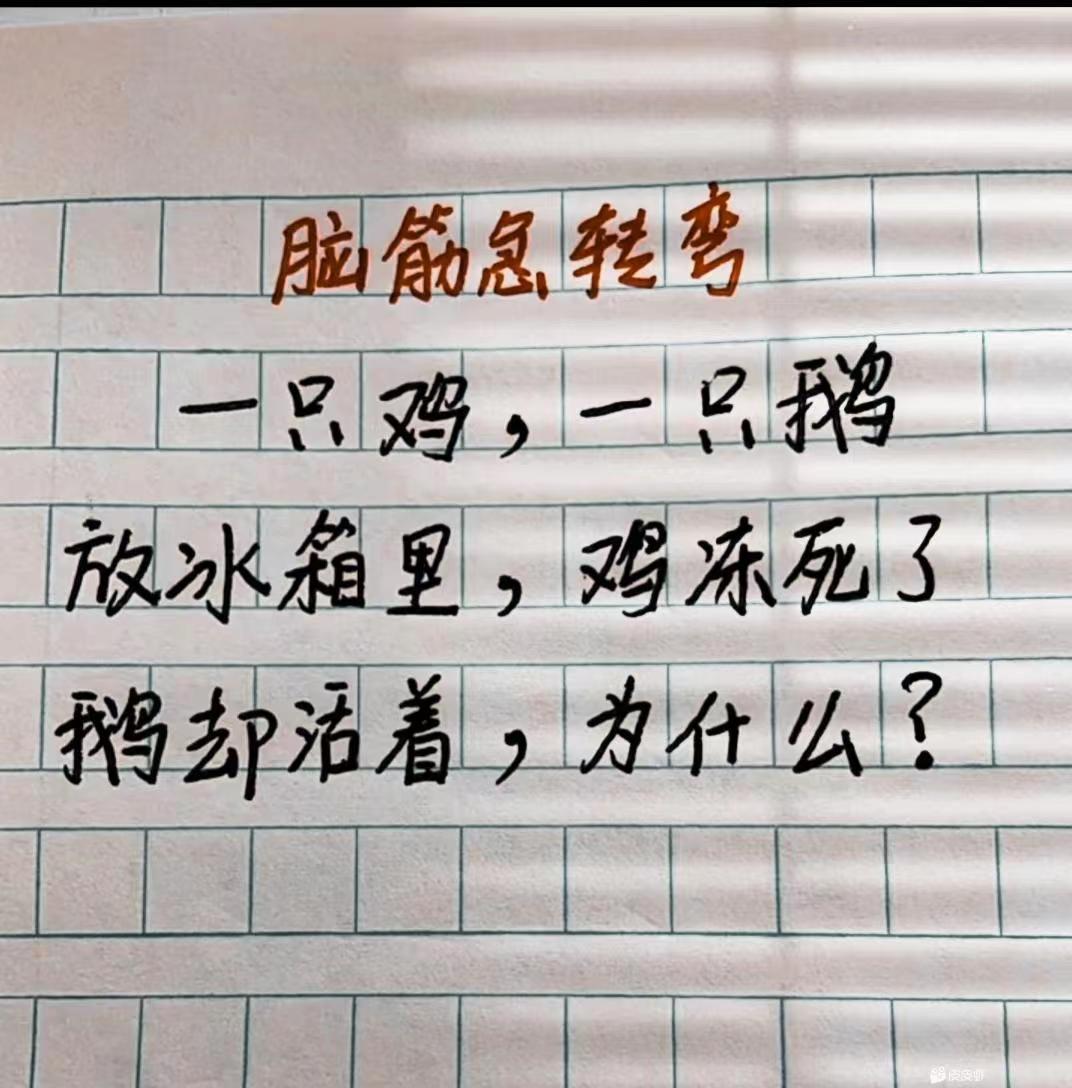 脑筋急转弯
一只鸡，一只鹅
放冰箱里，鸡冻死了
鹅却活着，为什么？
皮皮虾